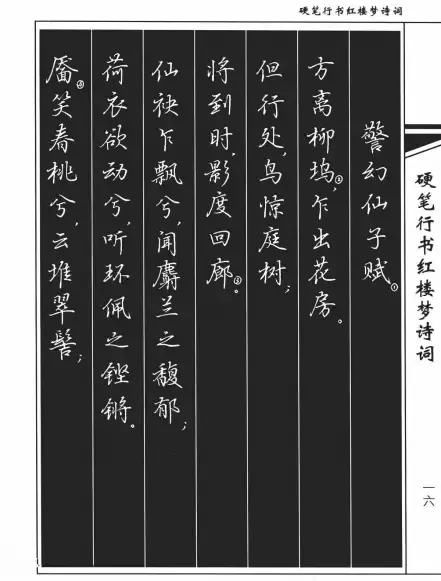 硬笔行书红楼梦诗词
警幻仙子赋。①
方离柳坞②,乍出花房。
但行处,鸟惊庭树;
将到时,影度回廊③。
仙袂乍飘兮,闻麝兰之馥郁;
荷衣欲动兮,听环佩之铿锵。
靥④笑春桃兮,云堆翠髻;
硬笔行书红楼梦诗词
一六